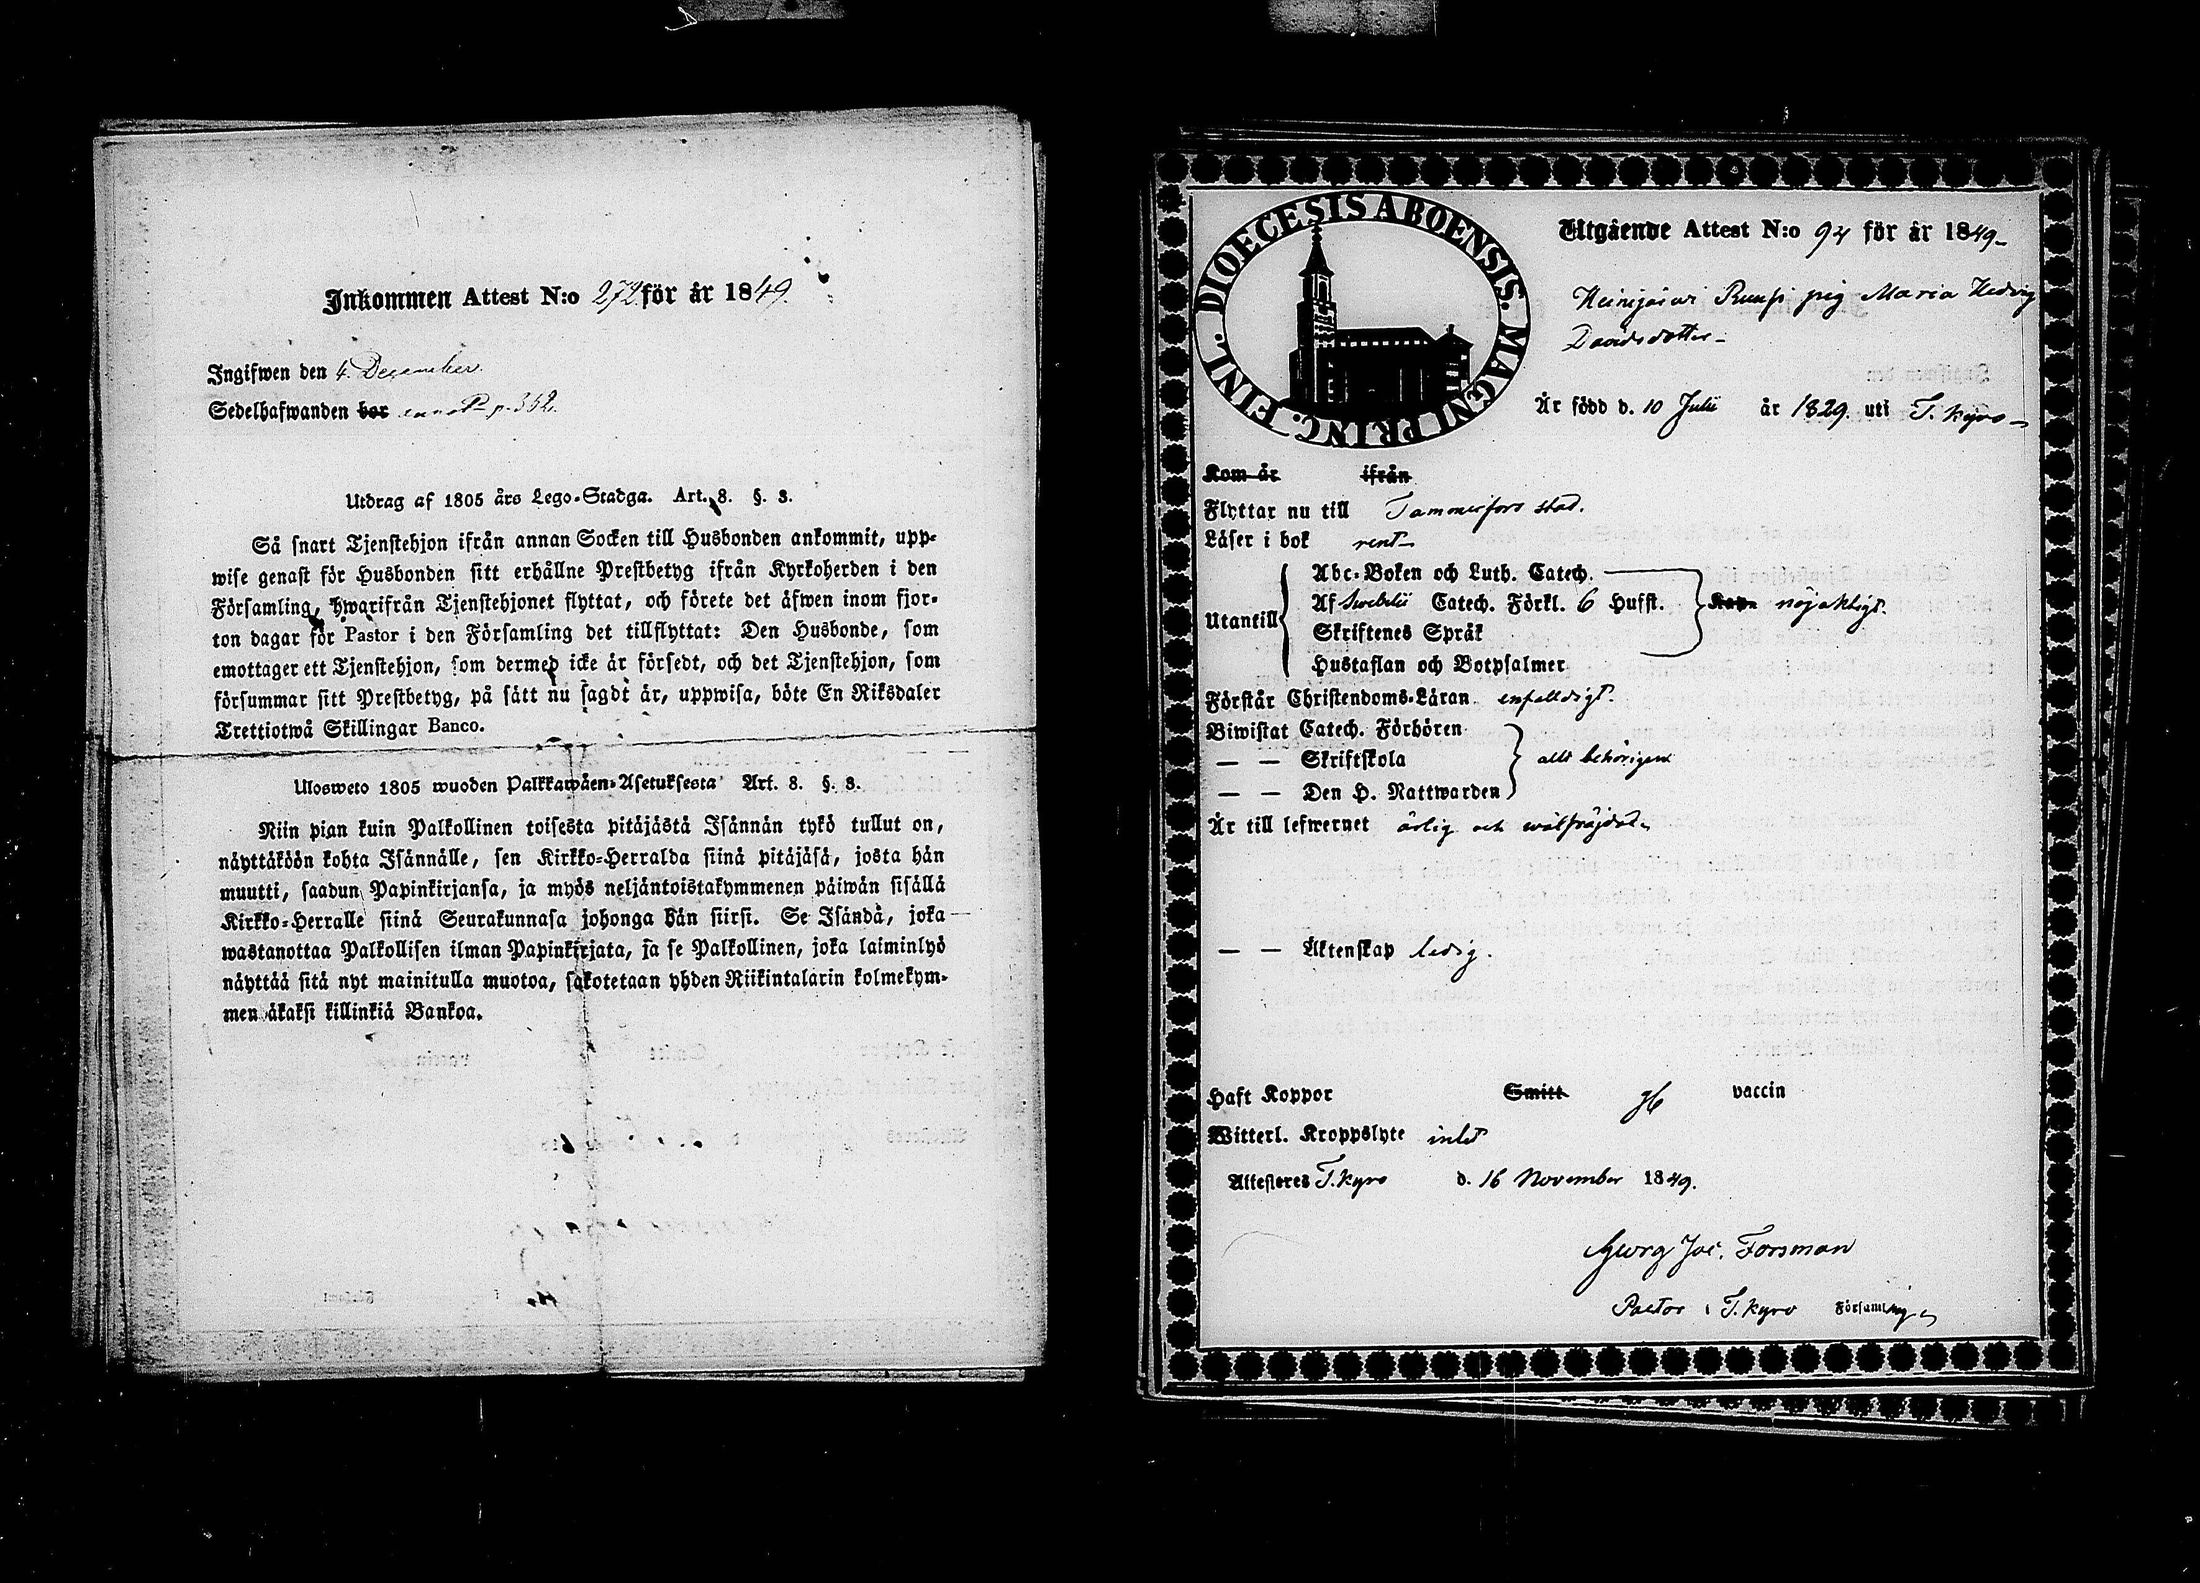 Inkommen Attest N:o 272 för år 1849.
Ingifwen den 4 December.
Sedelhafwanden bor annot p. 352.
Utdrag af 1805 års Lego-Stadga. Art. 8. §. 3.
Så snart Tjenstehjon ifrån annan Socken till Husbonden ankommit, upp-
wise genast för Husbonden sitt erhållne Prestbetyg ifrån Kyrkoherden i den
Församling, hwarifrån Tjenstehjonet flyttat, och förete det äfwen inom fjor-
ton dagar för Pastor i den Församling det tillflyttat: Den Husbonde, som
emottager ett Tjenstehjon, som dermed icke är försedt, och det Tjenstehjon, som
försummar sitt Prestbetyg, på sätt nu sagdt är, uppwisa, böte En Riksdaler
Trettiotwå Skillingar Banco.
Ulosweto 1805 wuoden Palkkawäen-Asetuksesta Art. 8. §. 3.
Niin pian kuin Palkollinen toisesta pitäjästä Isännän tykö tullut on,
näyttäköön kohta Isännälle, sen Kirkko-Herralda siinä pitäjäsä, josta hän
muutti, saadun Papinkirjansa, ja myös neljäntoistakymmenen päiwän sisällä
Kirkko-Herralle siinä Seurakunnasa johonga hän siirsi. Se Isändä, joka
wastanottaa Palkollisen ilman Papinkirjata, ja se Palkollinen, joka laiminlyö
näyttää sitä nyt mainitulla muotoa, sakotetaan yhden Riikintalarin kolmekym-
men äkaksi killinkiä Bankoa.
DIOECESIS ABOENSIS. MAGNI PRINC. FINL.
Utgående Attest N:o 94 för år 1849
Heinijärwi Ruupi pig Maria Hedvig
Davidsdotter
Är född d. 10 Julii år 1829. uti T. Kyro
Kom år ifrån
Flyttar nu till Tammerfors stad.
Läser i bok rent
Utantill
Abc-Boken och Luth. Catech.
Af Swebelii Catech. Förkl. 6 Hufst. nöjaktigt.
Skriftenes Språk
Hustaflan och Botpsalmer
Förstår Christendoms-Läran enfalldigt.
Biwistat Catech. Förhören
— — Skriftskola allt behörigen
— — Den H. Nattwarden
Är till lefwernet ärlig och wälfräjdad
— — Äktenskap ledig.
Haft Koppor Smitt vaccin
Witterl. Kroppslyte intet
Attesteres T. Kyro d. 16 November 1849.
Georg Jac. Forsman
Pastor i T. Kyro Församling